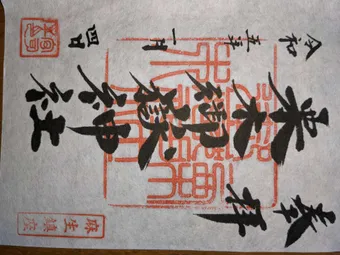 奉拝
栗木御嶽神社
令和五年一月四日
麻生鎮座